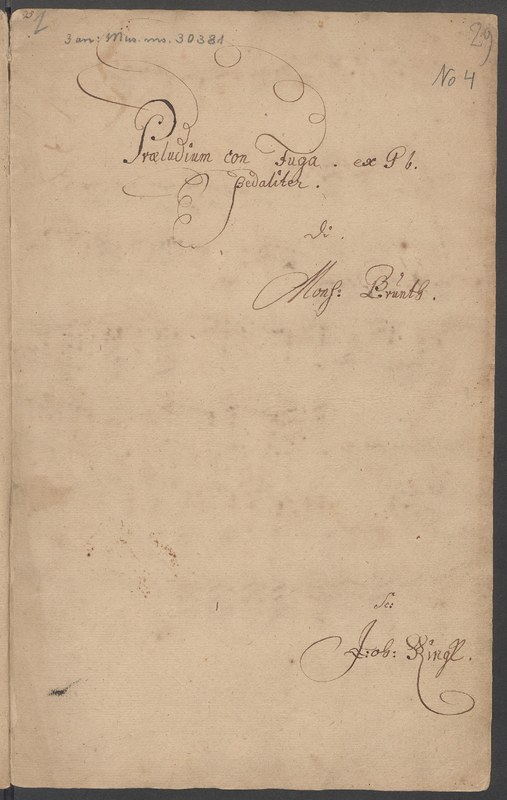 1
29
3 an: Mus. ms. 30381
No 4
Præludium con Fuga. ex G b.
pedaliter.
di.
Monſ: Brünth.
Sc:
Joh: Ringk.